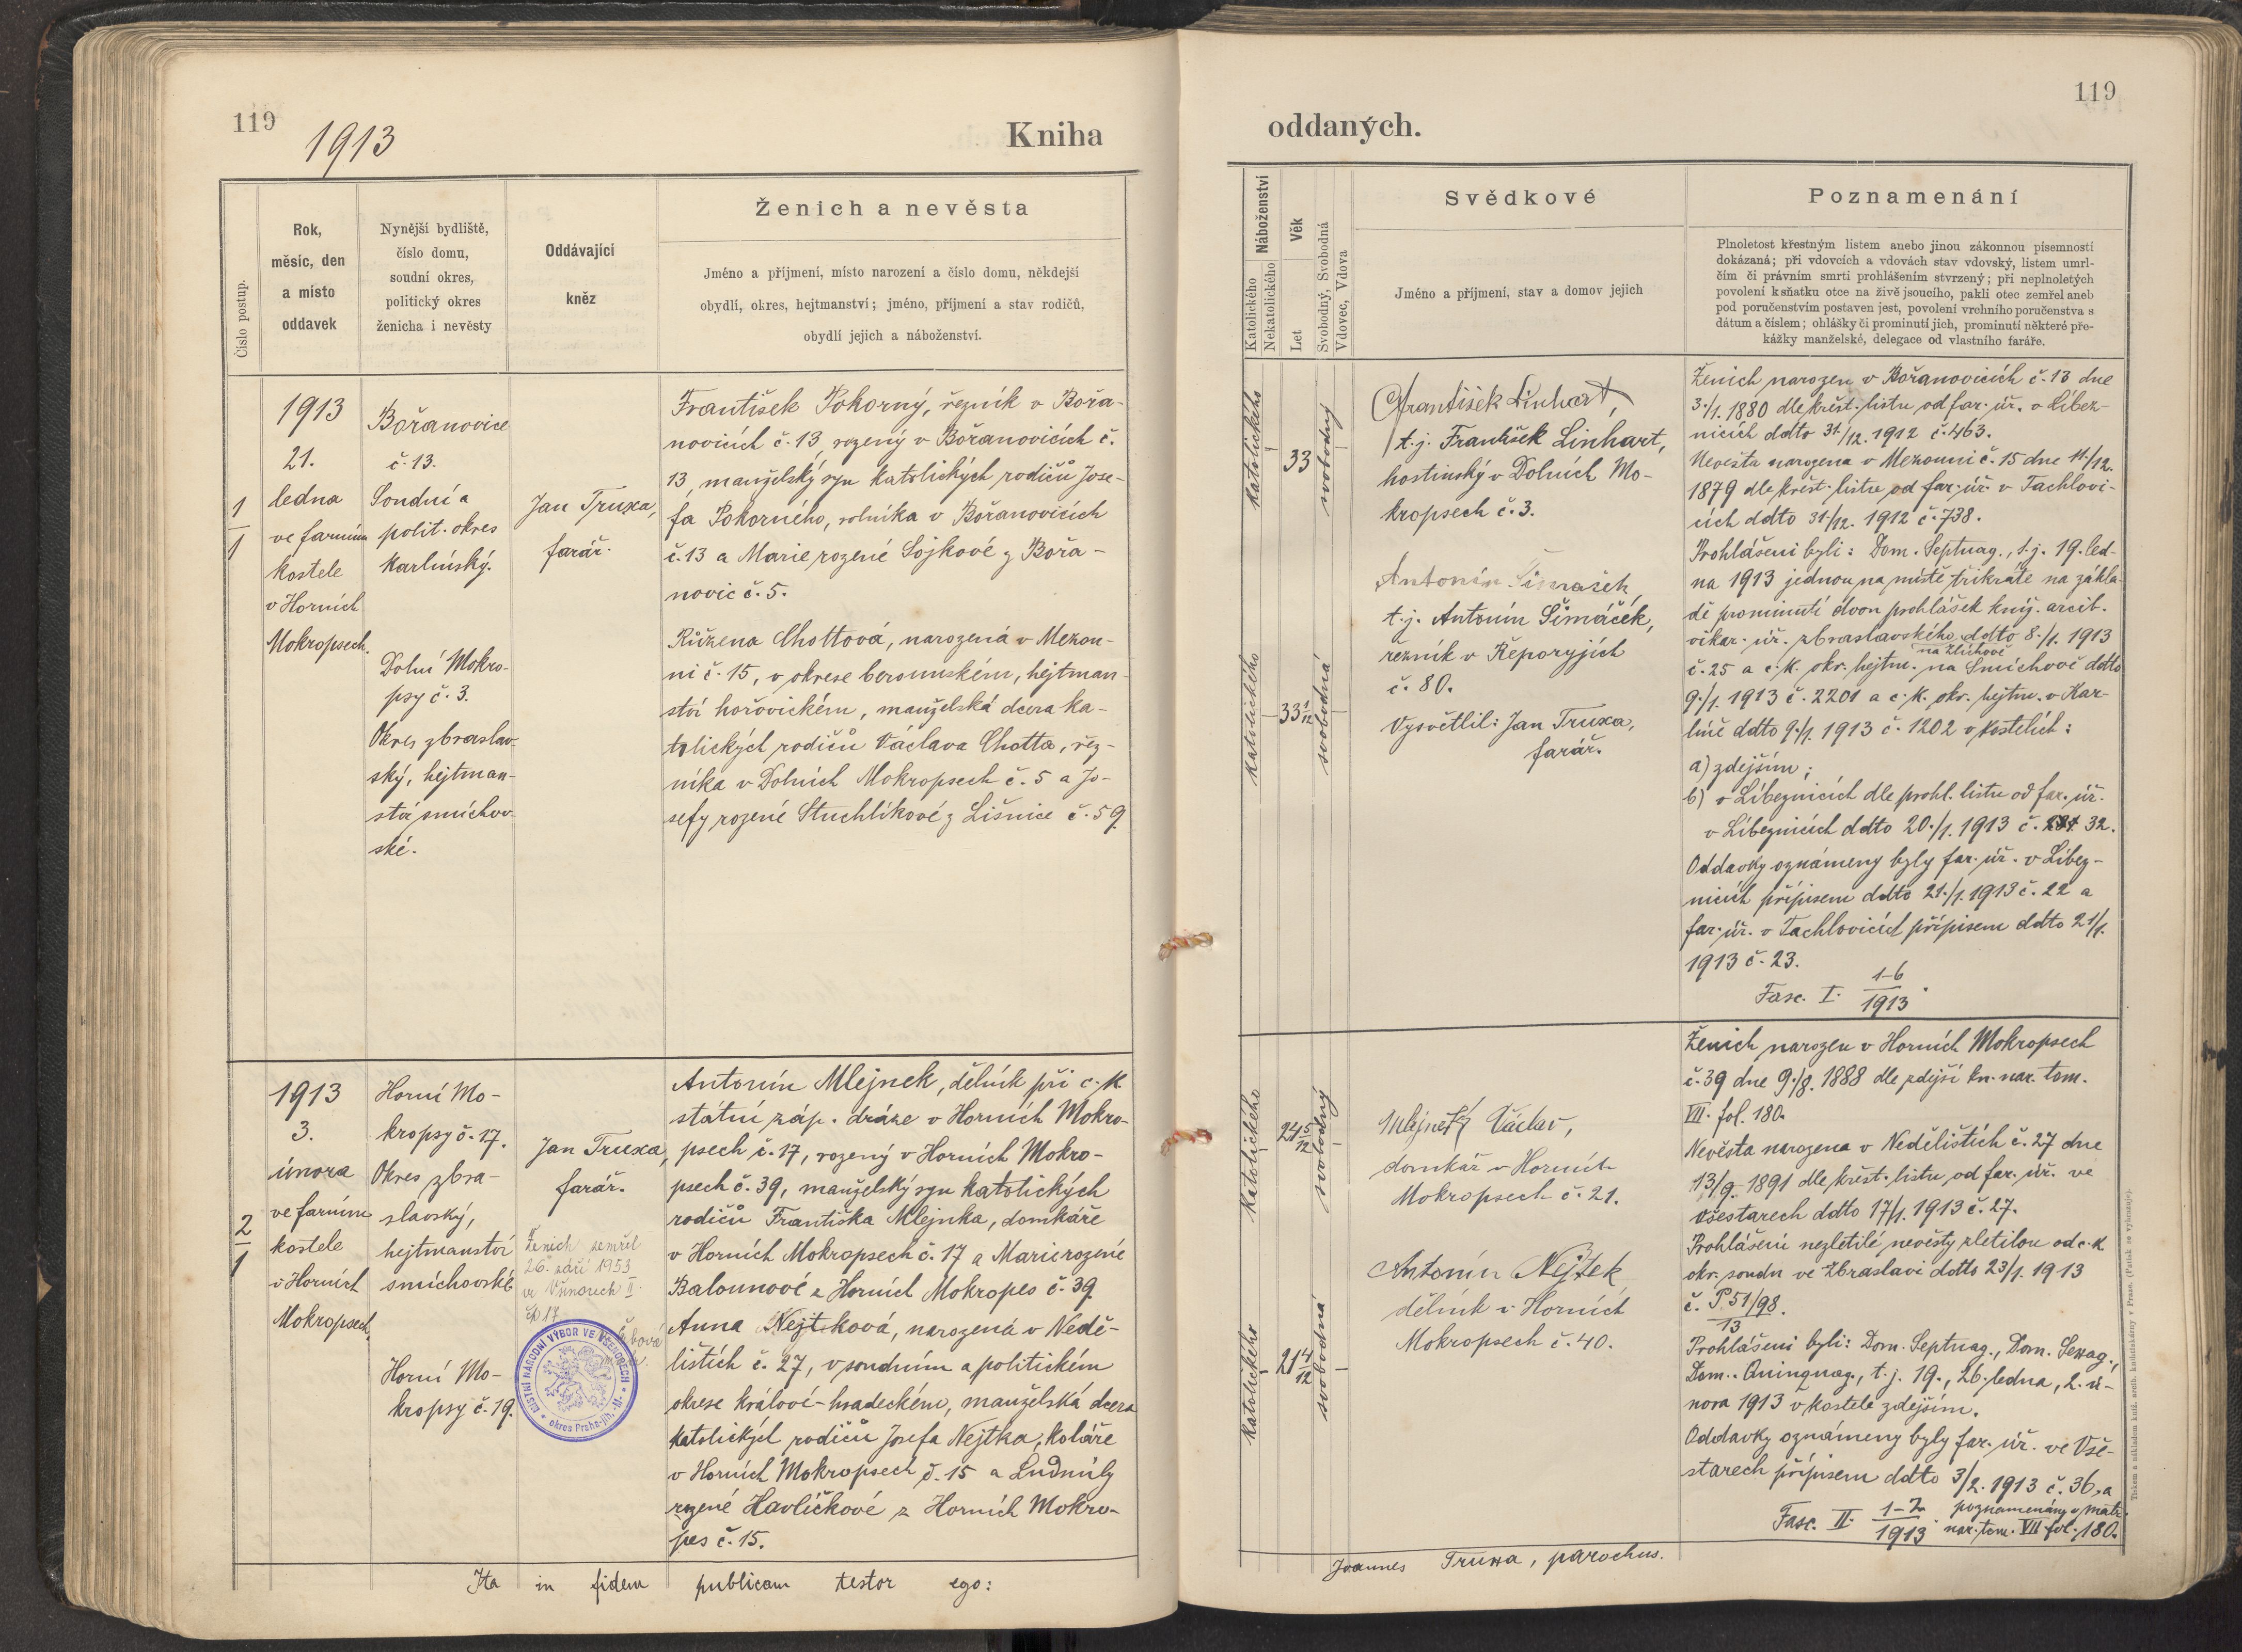 119
1913
Kniha
Číslo postup.
Rok,
měsíc, den
a místo
oddavek
Nynější bydliště,
číslo domu,
soudní okres,
politický okres
ženicha i nevěsty
Oddávající
kněz
Ženich a nevěsta
Jméno a příjmení, místo narození a číslo domu, někdejší
obydlí, okres, hejtmanství; jméno, příjmení a stav rodičů,
obydlí jejich a náboženství.
1
1
1913
21.
ledna
ve farním
kostele
v Horních
Mokropsech.
Bořanovice
č. 13.
Soudní a
polit. okres
karlínský.
Dolní Mokro-
psy č. 3.
Okres zbraslav-
ský, hejtman-
ství smíchov-
ské.
Jan Truxa,
farář.
František Pokorný, řezník v Bořa-
novicích č. 13, rozený v Bořanovicích č.
13, manželský syn katolických rodičů Jose-
fa Pokorného, rolníka v Bořanovicích
č. 13 a Marie rozené Sojkové z Bořa-
novic č. 5.
Růžena Chottová, narozená v Mezou-
ni č. 15, v okrese berounském, hejtman-
ství hořovickém, manželská dcera ka-
tolických rodičů Václava Chotta, řez-
níka v Dolních Mokropsech č. 5 a Jo-
sefy rozené Stuchlíkové z Lišnice č. 59.
2
1
1913
3.
února
ve farním
kostele
v Horních
Mokropsech.
Horní Mo-
kropsy č. 17.
Okres zbra-
slavský,
hejtmanství
smíchovské
Horní Mo-
kropsy č. 19.
Jan Truxa,
farář.
Ženich zemřel
26. září 1953
ve Všenorech II
čp 17
MÍSTNÍ NÁRODNÍ VÝBOR VE VŠENORECH
okres Praha-jih.
Antonín Mlejnek, dělník při c. k.
státní záp. dráze v Horních Mokro-
psech č. 17, rozený v Horních Mokro-
psech č. 39, manželský syn katolických
rodičů Františka Mlejnka, domkáře
v Horních Mokropsech č. 17 a Marie rozené
Balounové z Horních Mokropes č. 39.
Anna Nejtková, narozená v Nedě-
lištích č. 27, v soudním a politickém
okrese králové-hradeckém, manželská dcera
katolických rodičů Josefa Nejtka, koláře
v Horních Mokropsech č. 15 a Ludmily
rozené Havlíčkové z Horních Mokro-
pes č. 15.
Ita in fidem publicam testor ego:
119
oddaných.
Náboženství
Katolického
Nekatolického
Věk
Let
Svobodný, Svobodná
Vdovec, Vdova
Svědkové
Jméno a příjmení, stav a domov jejich
Poznamenání
Plnoletost křestným listem anebo jinou zákonnou písemností
dokázaná; při vdovcích a vdovách stav vdovský, listem umrl-
čím či právním smrti prohlášením stvrzený; při neplnoletých
povolení k sňatku otce na živě jsoucího, pakli otec zemřel aneb
pod poručenstvím postaven jest, povolení vrchního poručenstva s
dátum a číslem; ohlášky či prominutí jich, prominutí některé pře-
kážky manželské, delegace od vlastního faráře.
Katolického
33
svobodný
Katolického
33 1/12
svobodná
František Linhart,
t. j. František Linhart,
hostinský v Dolních Mo-
kropsech č. 3.
Antonín Šimáček,
t. j. Antonín Šimáček,
řezník v Řeporyjích
č. 80.
Vysvětlil: Jan Truxa,
farář.
Ženich narozen v Bořanovicích č. 13 dne
3./1. 1880 dle křest. listu od far. úř. v Líbez-
nicích ddto 31./12. 1912 č. 463.
Nevěsta narozena v Mezouni č. 15 dne 11./12.
1879 dle křest. listu od far. úř. v Tachlovi-
cích ddto 31/12. 1912 č. 738.
Prohlášeni byli: Dom. Septuag., t. j. 19. led-
na 1913 jednou na místě třikráte na zákla-
dě prominutí dvou prohlášek kníž. arcib.
vikar. úř. zbraslavského ddto 8./1. 1913
na Zlíchově
č. 25 a c. k. okr. hejtm. na Smíchově ddto
9./1. 1913 č. 2201 a c. k. okr. hejtm. v Kar-
líně ddto 9./1. 1913 č. 1202 v kostelích:
a) zdejším;
b) v Líbeznicích dle prohl. listu od far. úř.
v Líbeznicích ddto 20./1. 1913 č. 32.
Oddavky oznámeny byly far. úř. v Líbez-
nicích přípisem ddto 21./1. 1913 č. 22 a
far. úř. v Tachlovicích přípisem ddto 21/1.
1913 č. 23.
Fasc. I. 1-6/1913.
Katolického
24 5/12
svobodný
Katolického
21 4/12
svobodná
Mlejnek Václav,
domkář v Horních
Mokropsech č. 21.
Antonín Nejtek
dělník v Horních
Mokropsech č. 40.
Ženich narozen v Horních Mokropsech
č. 39 dne 9./8. 1888 dle zdejší kn. nar. tom.
VII. fol. 180.
Nevěsta narozena v Nedělištích č. 27 dne
13/9. 1891 dle křest. listu, od far. úř. ve
Všestarech ddto 17/1. 1913 č. 27.
Prohlášení nezletilé nevěsty zletilou od c. k.
okr. soudu ve Zbraslavi ddto 23/1. 1913
č. P. 51/98.
13
Prohlášeni byli: Dom. Septuag., Dom. Sexag.,
Dom. Quinquag., t. j. 19., 26. ledna, 2. ú-
nora 1913 v kostele zdejším.
Oddavky oznámeny byly far. úř. ve Vše-
starech přípisem ddto 3/2. 1913 č. 36, a
poznamenány v matr.
Fasc. II. 1-2/1913. nar. tom. VII fol. 180.
Joannes Truxa, parochus.